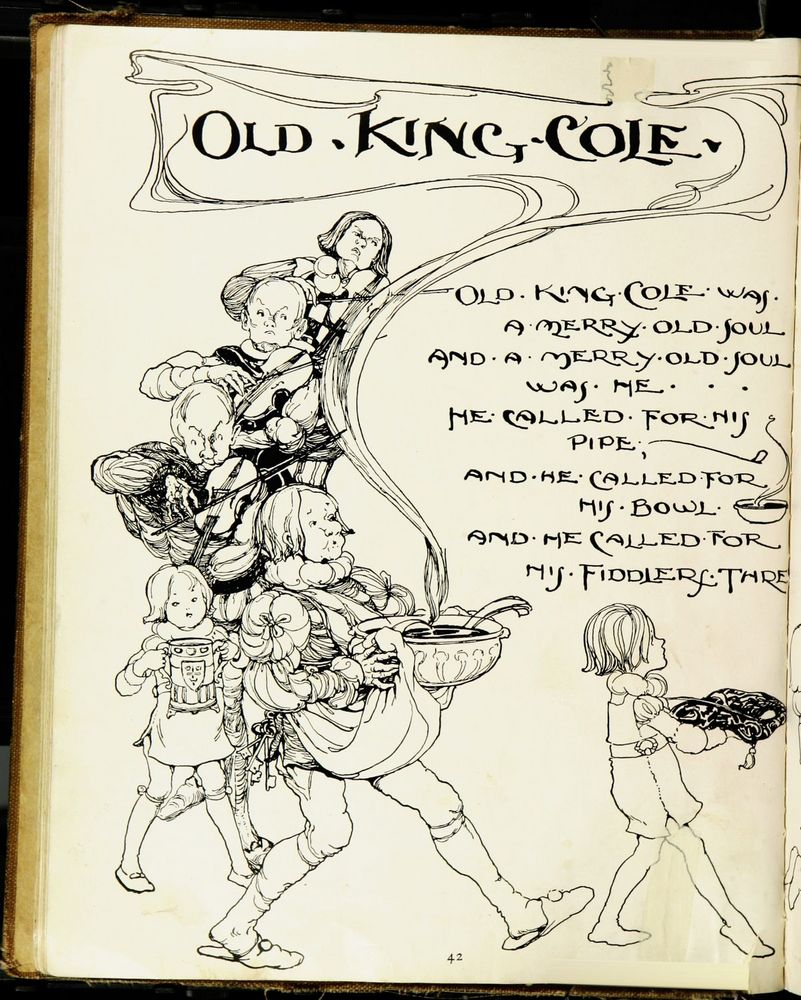 OLD · KING · COLE ·
OLD · KING · COLE · WAS ·
A · MERRY · OLD · SOUL
AND · A · MERRY · OLD · SOUL
WAS · HE · · ·
HE · CALLED · FOR · HIS
PIPE;
AND · HE · CALLED · FOR
HIS · BOWL ·
AND · HE CALLED · FOR
HIS · FIDDLERS · THRE
42